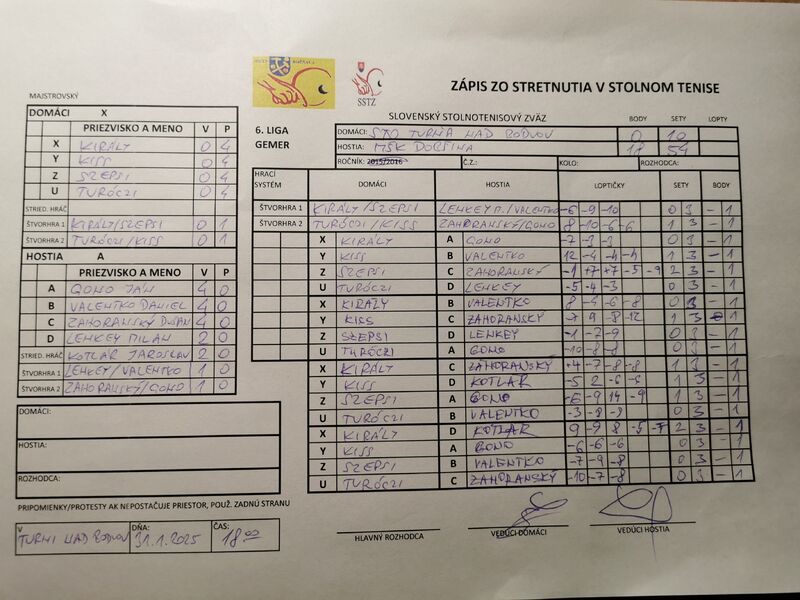 ZÁPIS ZO STRETNUTIA V STOLNOM TENISE
SSTZ
MAJSTROVSKÝ
SLOVENSKÝ STOLNOTENISOVÝ ZVÄZ BODY SETY LOPTY
6. LIGA
GEMER
DOMÁCI: STO TURŇA NAD BODVOU 0 10
HOSTIA: MŠK DOBŠINA 18 54
ROČNÍK: 2015/2016 Č.Z.: KOLO: ROZHODCA:
DOMÁCI X
PRIEZVISKO A MENO V P
X KIRÁLY 0 4
Y KISS 0 4
Z SZEPSI 0 4
U TURÓCZI 0 4
STRIED. HRÁČ
ŠTVORHRA 1 KIRÁLY/SZEPSI 0 1
ŠTVORHRA 2 TURÓCZI/KISS 0 1
HOSTIA A
PRIEZVISKO A MENO V P
A GONO JÁN 4 0
B VALENTKO DANIEL 4 0
C ZAHORANSKÝ DUŠAN 4 0
D LENKEY MILAN 2 0
STRIED. HRÁČ KOTLÁR JAROSLAV 2 0
ŠTVORHRA 1 LENKEY/VALENTKO 1 0
ŠTVORHRA 2 ZAHORANSKÝ/GONO 1 0
DOMÁCI:
HOSTIA:
ROZHODCA:
PRIPOMIENKY/PROTESTY AK NEPOSTAČUJE PRIESTOR, POUŽ. ZADNÚ STRANU
V DŇA: ČAS:
TURNI NAD BODVOU 31.1.2025 18.00
HRACÍ SYSTÉM DOMÁCI HOSTIA LOPTIČKY SETY BODY
ŠTVORHRA 1 KIRÁLY/SZEPSI LENKEY M./VALENTKO -6 -9 -10 0 3 - 1
ŠTVORHRA 2 TURÓCZI/KISS ZAHORANSKÝ/GONO 8 -10 -6 -6 1 3 - 1
X KIRÁLY A GONO -7 -3 -3 0 3 - 1
Y KISS B VALENTKO 12 -4 -4 -4 1 3 - 1
Z SZEPSI C ZAHORANSKÝ -1 +7 +7 -5 -9 2 3 - 1
U TURÓCZI D LENKEY -5 -4 -3 0 3 - 1
X KIRÁLY B VALENTKO 8 -4 -6 -8 3 - 1
Y KISS C ZAHORANSKÝ -7 9 -8 -12 1 3 1
Z SZEPSI D LENKEY -1 -7 -9 0 3 - 1
U TURÓCZI A GONO -10 -8 -8 0 3 - 1
X KIRÁLY C ZAHORANSKÝ +4 -7 -8 -8 1 3 - 1
Y KISS D KOTLÁR -5 2 -6 -6 1 3 - 1
Z SZEPSI A GONO -6 -9 14 -9 1 3 - 1
U TURÓCZI B VALENTKO -3 -8 -8 0 3 - 1
X KIRÁLY D KOTLÁR 9 -9 8 -5 -7 2 3 - 1
Y KISS A GONO -6 -6 -6 0 3 - 1
Z SZEPSI B VALENTKO -7 -9 -8 0 3 - 1
U TURÓCZI C ZAHORANSKÝ -10 -7 -8 0 3 - 1
HLAVNÝ ROZHODCA VEDÚCI DOMÁCI VEDÚCI HOSTIA